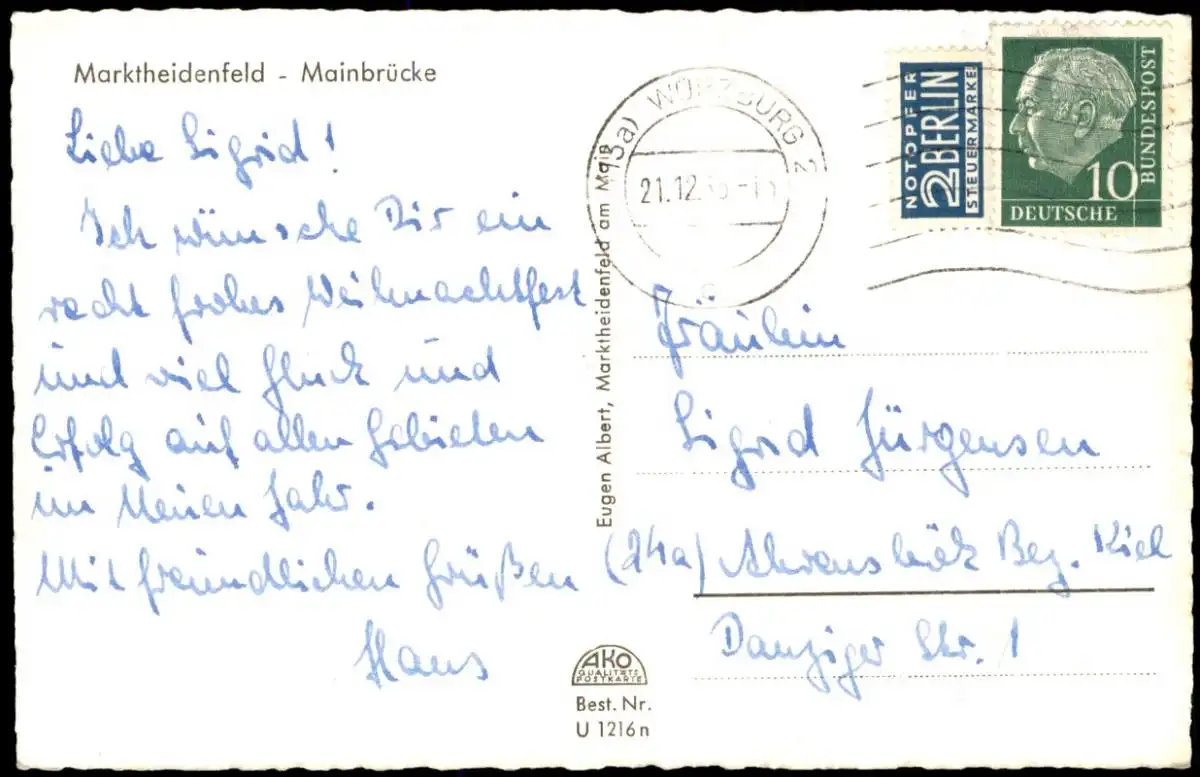 Marktheidenfeld - Mainbrücke
Liebe Sigrid!
Ich wünsche Dir ein
recht frohes Weihnachtsfest
und viel Glück und
Erfolg auf allen Gebieten
im Neuen Jahr.
Mit freundlichen Grüßen
Hans
Eugen Albert, Marktheidenfeld am Main
AKO
QUALITÄTS
POSTKARTE
Best. Nr.
U 1216n
(13a) WÜRZBURG 2
21.12.
c
NOTOPFER
2 BERLIN
STEUERMARKE
10
DEUTSCHE
BUNDESPOST
Fräulein
Sigrid Jürgensen
(24a) Ahrensbök Bez. Kiel
Danziger Str. 1